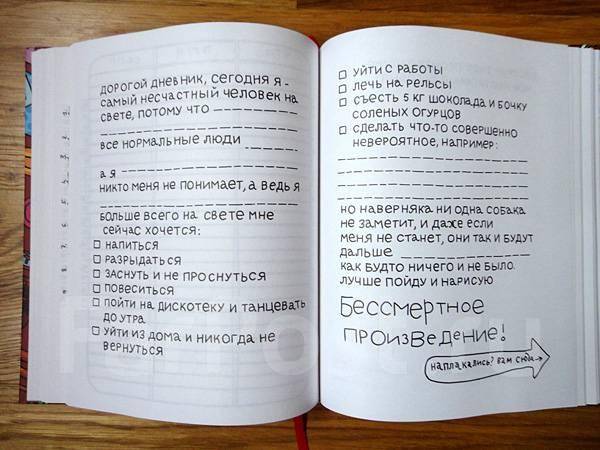 ДОРОГОЙ ДНЕВНИК, СЕГОДНЯ Я -
САМЫЙ НЕСЧАСТНЫЙ ЧЕЛОВЕК НА
СВЕТЕ, ПОТОМУ ЧТО
ВСЕ НОРМАЛЬНЫЕ ЛЮДИ
А Я
НИКТО МЕНЯ НЕ ПОНИМАЕТ, А ВЕДЬ Я
БОЛЬШЕ ВСЕГО НА СВЕТЕ МНЕ
СЕЙЧАС ХОЧЕТСЯ:
НАПИТЬСЯ
РАЗРЫДАТЬСЯ
ЗАСНУТЬ И НЕ ПРОСНУТЬСЯ
ПОВЕСИТЬСЯ
ПОЙТИ НА ДИСКОТЕКУ И ТАНЦЕВАТЬ
ДО УТРА
УЙТИ ИЗ ДОМА И НИКОГДА НЕ
ВЕРНУТЬСЯ
УЙТИ С РАБОТЫ
ЛЕЧЬ НА РЕЛЬСЫ
СЪЕСТЬ 5 КГ ШОКОЛАДА И БОЧКУ
СОЛЕНЫХ ОГУРЦОВ
СДЕЛАТЬ ЧТО-ТО СОВЕРШЕННО
НЕВЕРОЯТНОЕ, НАПРИМЕР:
НО НАВЕРНЯКА НИ ОДНА СОБАКА
НЕ ЗАМЕТИТ, И ДАЖЕ ЕСЛИ
МЕНЯ НЕ СТАНЕТ, ОНИ ТАК И БУДУТ
ДАЛЬШЕ
КАК БУДТО НИЧЕГО И НЕ БЫЛО.
ЛУЧШЕ ПОЙДУ И НАРИСУЮ
БЕССМЕРТНОЕ
ПРОИЗВЕДЕНИЕ!
НАПЛАКАЛИСЬ? ВАМ СЮДА